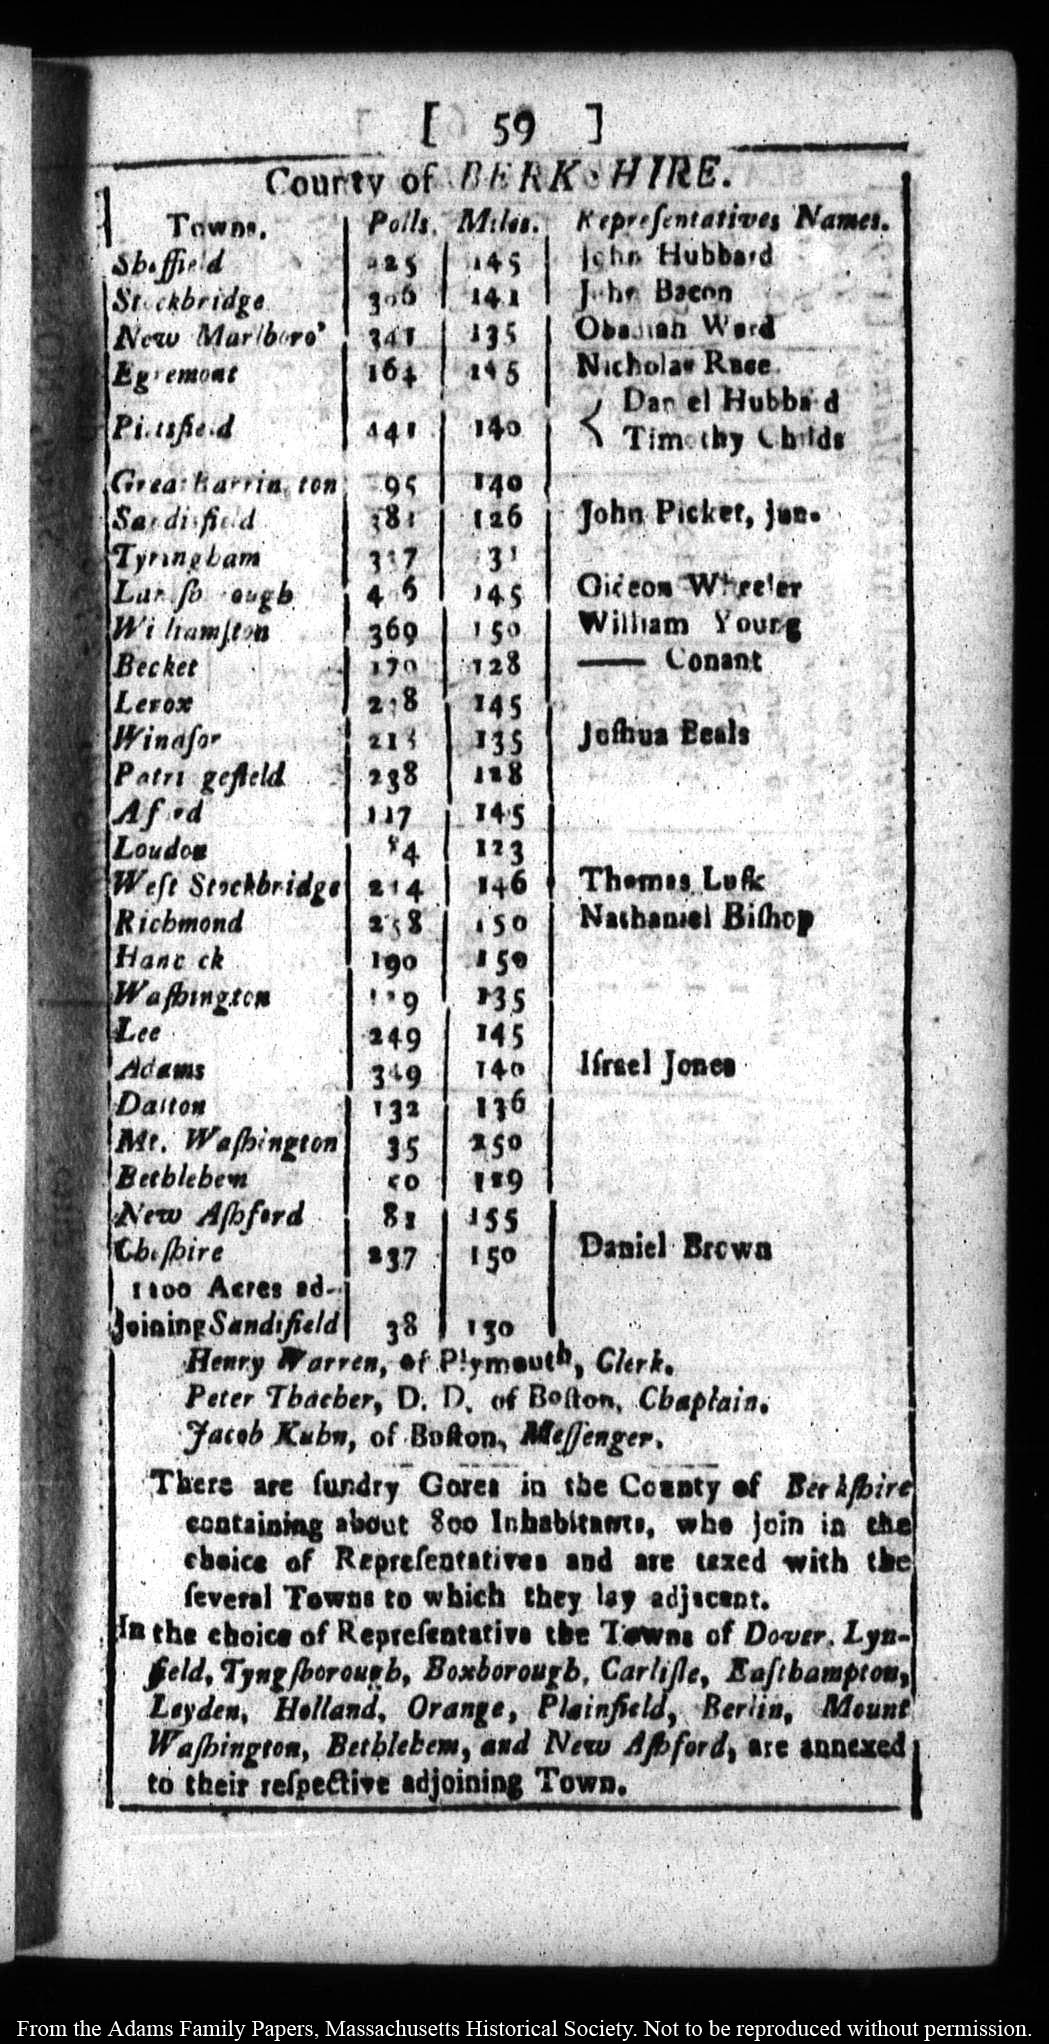 [ 59 ]
County of BERKSHIRE.
Towns. Polls. Miles. Repreſentatives Names.
Sheffield 145 John Hubbard
Stockbridge 306 141 John Bacon
New Marlboro' 341 135 Obadiah Ward
Egremont 164 145 Nicholas Race.
Pittsfield 441 140 { Daniel Hubbard
Timothy Childs
Great Barrington 140
Sandisfield 381 126 John Picket, jun.
Tyringham
Lanesborough 145 Gideon Wheeler
Williamſton 369 150 William Young
Becket 170 128 —— Conant
Lenox 145
Windſor 135 Joſhua Beals
Patridgefield 238 128
Alford 117 145
Loudon 123
Weſt Stockbridge 214 146 Thomas Luſk
Richmond 150 Nathaniel Biſhop
Hancock 190 150
Waſhington 135
Lee 249 145
Adams 349 140 Iſrael Jones
Dalton 132 136
Mt. Waſhington 35 250
Bethlehem 50 129
New Aſhford 81 155
Cheſhire 237 150 Daniel Brown
1100 Acres ad-
joining Sandisfield 38 130
Henry Warren, of Plymouth, Clerk.
Peter Thacher, D. D. of Boſton, Chaplain.
Jacob Kuhn, of Boſton, Meſſenger.
There are ſundry Gores in the County of Berkſhire
containing about 800 Inhabitants, who join in the
choice of Repreſentatives and are taxed with the
ſeveral Towns to which they lay adjacent.
In the choice of Repreſentative the Towns of Dover, Lyn-
field, Tyngſborough, Boxborough, Carliſle, Eaſthampton,
Leyden, Holland, Orange, Plainfield, Berlin, Mount
Waſhington, Bethlehem, and New Aſhford, are annexed
to their reſpective adjoining Town.
From the Adams Family Papers, Massachusetts Historical Society. Not to be reproduced without permission.